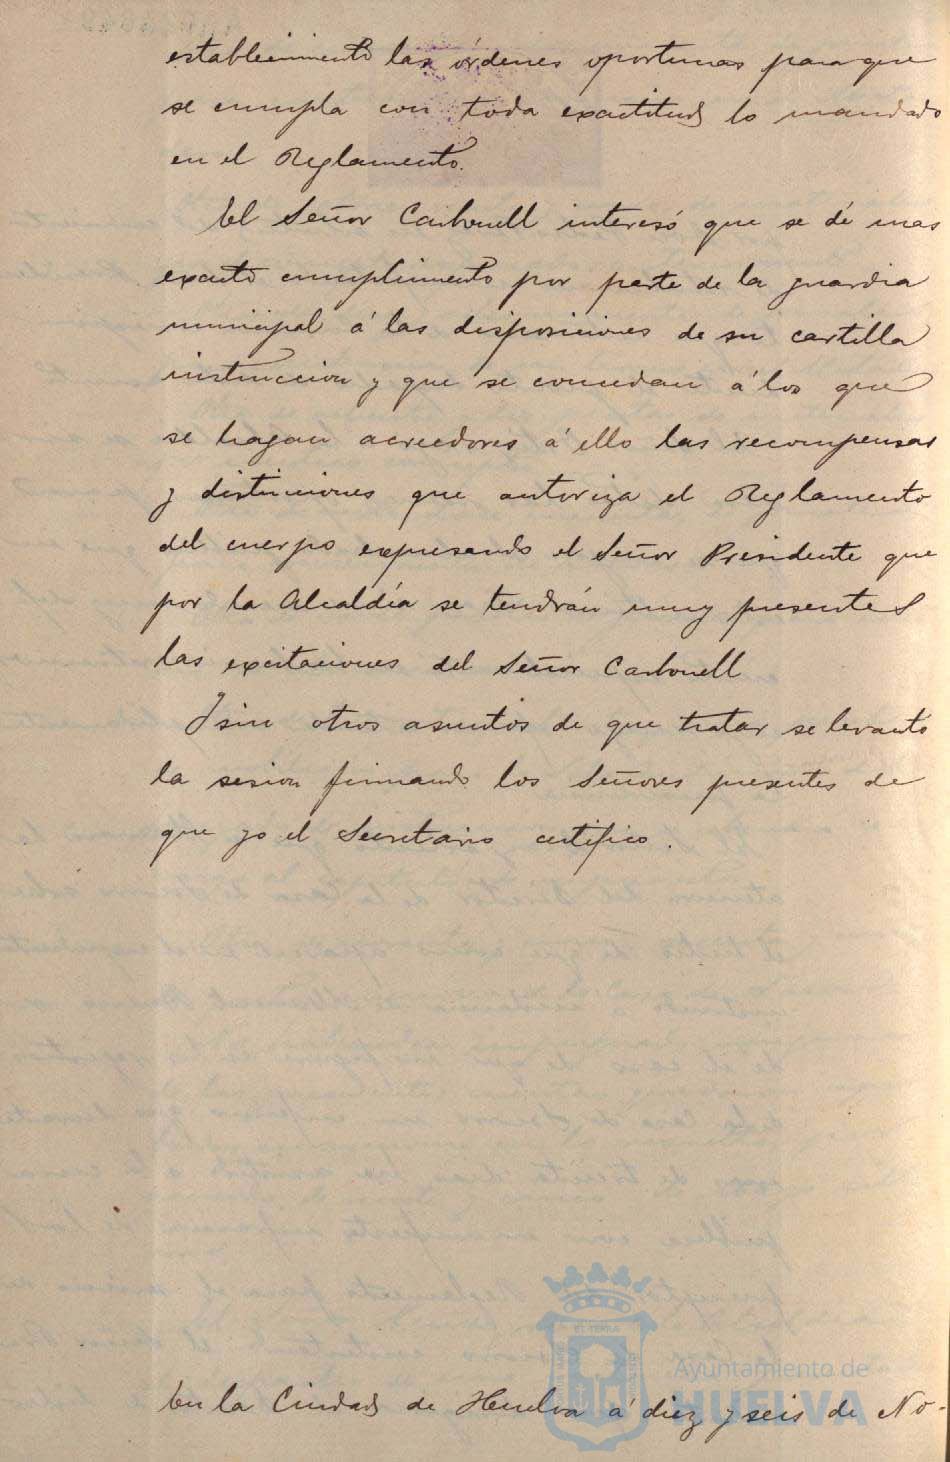 establecimiento las órdenes oportunas para que
se cumpla con toda exactitud lo mandado
en el Reglamento.
El Señor Carbonell interesó que se dé mas
exacto cumplimiento por parte de la guardia
municipal á las disposiciones de su cartilla
instruccion y que se concedan á los que
se hagan acreedores á ello las recompensas
y distinciones que autoriza el Reglamento
del cuerpo expresando el Señor Presidente que
por la Alcaldía se tendrán muy presentes
las excitaciones del Señor Carbonell
Y sin otros asuntos de que tratar se levantó
la sesion firmando los Señores presentes de
que yo el Secretario certifico.
Ayuntamiento de
HUELVA
En la Ciudad de Huelva á diez y seis de No-